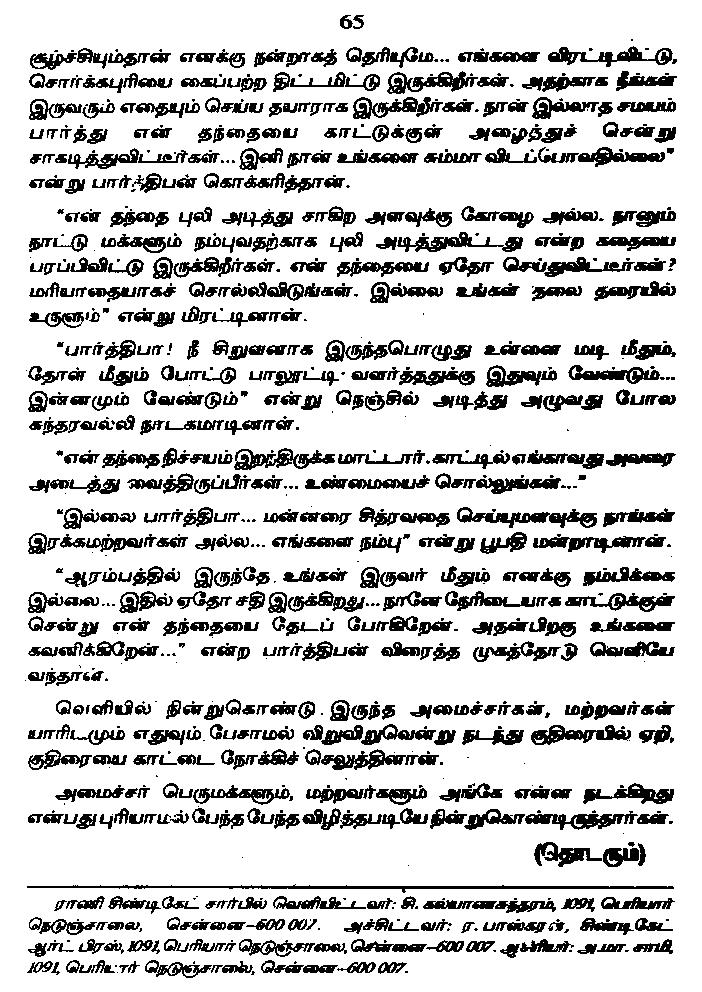 65
சூழ்ச்சியும்தான் எனக்கு நன்றாகத் தெரியுமே... எங்களை விரட்டிவிட்டு,
சொர்க்கபுரியை கைப்பற்ற திட்டமிட்டு இருக்கிறீர்கள். அதற்காக நீங்கள்
இருவரும் எதையும் செய்ய தயாராக இருக்கிறீர்கள். நான் இல்லாத சமயம்
பார்த்து என் தந்தையை காட்டுக்குள் அழைத்துச் சென்று
சாகடித்துவிட்டீர்கள்... இனி நான் உங்களை சும்மா விடப்போவதில்லை”
என்று பார்த்திபன் கொக்கரித்தான்.
“என் தந்தை புலி அடித்து சாகிற அளவுக்கு கோழை அல்ல. நானும்
நாட்டு மக்களும் நம்புவதற்காக புலி அடித்துவிட்டது என்ற கதையை
பரப்பிவிட்டு இருக்கிறீர்கள். என் தந்தையை ஏதோ செய்துவிட்டீர்கள்?
மரியாதையாகச் சொல்லிவிடுங்கள். இல்லை உங்கள் தலை தரையில்
உருளும்” என்று மிரட்டினான்.
“பார்த்திபா! நீ சிறுவனாக இருந்தபொழுது உன்னை மடி மீதும்,
தோள் மீதும் போட்டு பாலூட்டி வளர்த்ததுக்கு இதுவும் வேண்டும்...
இன்னமும் வேண்டும்” என்று நெஞ்சில் அடித்து அழுவது போல
சுந்தரவல்லி நாடகமாடினாள்.
“என் தந்தை நிச்சயம் இறந்திருக்க மாட்டார். காட்டில் எங்காவது அவரை
அடைத்து வைத்திருப்பீர்கள்... உண்மையைச் சொல்லுங்கள்...”
“இல்லை பார்த்திபா... மன்னரை சித்ரவதை செய்யுமளவுக்கு நாங்கள்
இரக்கமற்றவர்கள் அல்ல... எங்களை நம்பு” என்று பூபதி மன்றாடினான்.
“ஆரம்பத்தில் இருந்தே உங்கள் இருவர் மீதும் எனக்கு நம்பிக்கை
இல்லை... இதில் ஏதோ சதி இருக்கிறது... நானே நேரிடையாக காட்டுக்குள்
சென்று என் தந்தையை தேடப் போகிறேன். அதன்பிறகு உங்களை
கவனிக்கிறேன்...” என்ற பார்த்திபன் விரைத்த முகத்தோடு வெளியே
வந்தான்.
வெளியில் நின்றுகொண்டு இருந்த அமைச்சர்கள், மற்றவர்கள்
யாரிடமும் எதுவும் பேசாமல் விறுவிறுவென்று நடந்து குதிரையில் ஏறி,
குதிரையை காட்டை நோக்கிச் செலுத்தினான்.
அமைச்சர் பெருமக்களும், மற்றவர்களும் அங்கே என்ன நடக்கிறது
என்பது புரியாமல் பேந்த பேந்த விழித்தபடியே நின்றுகொண்டிருந்தார்கள்.
(தொடரும்)
ராணி சிண்டிகேட் சார்பில் வெளியிட்டவர்: சி. கல்யாணசுந்தரம், 1091, பெரியார்
நெடுஞ்சாலை, சென்னை–600 007. அச்சிட்டவர்: ர. பாஸ்கரன், சிண்டிகேட்
ஆர்ட் பிரஸ், 1091, பெரியார் நெடுஞ்சாலை, சென்னை–600 007. ஆசிரியர்: அ.மா. சாமி,
1091, பெரியார் நெடுஞ்சாலை, சென்னை–600 007.